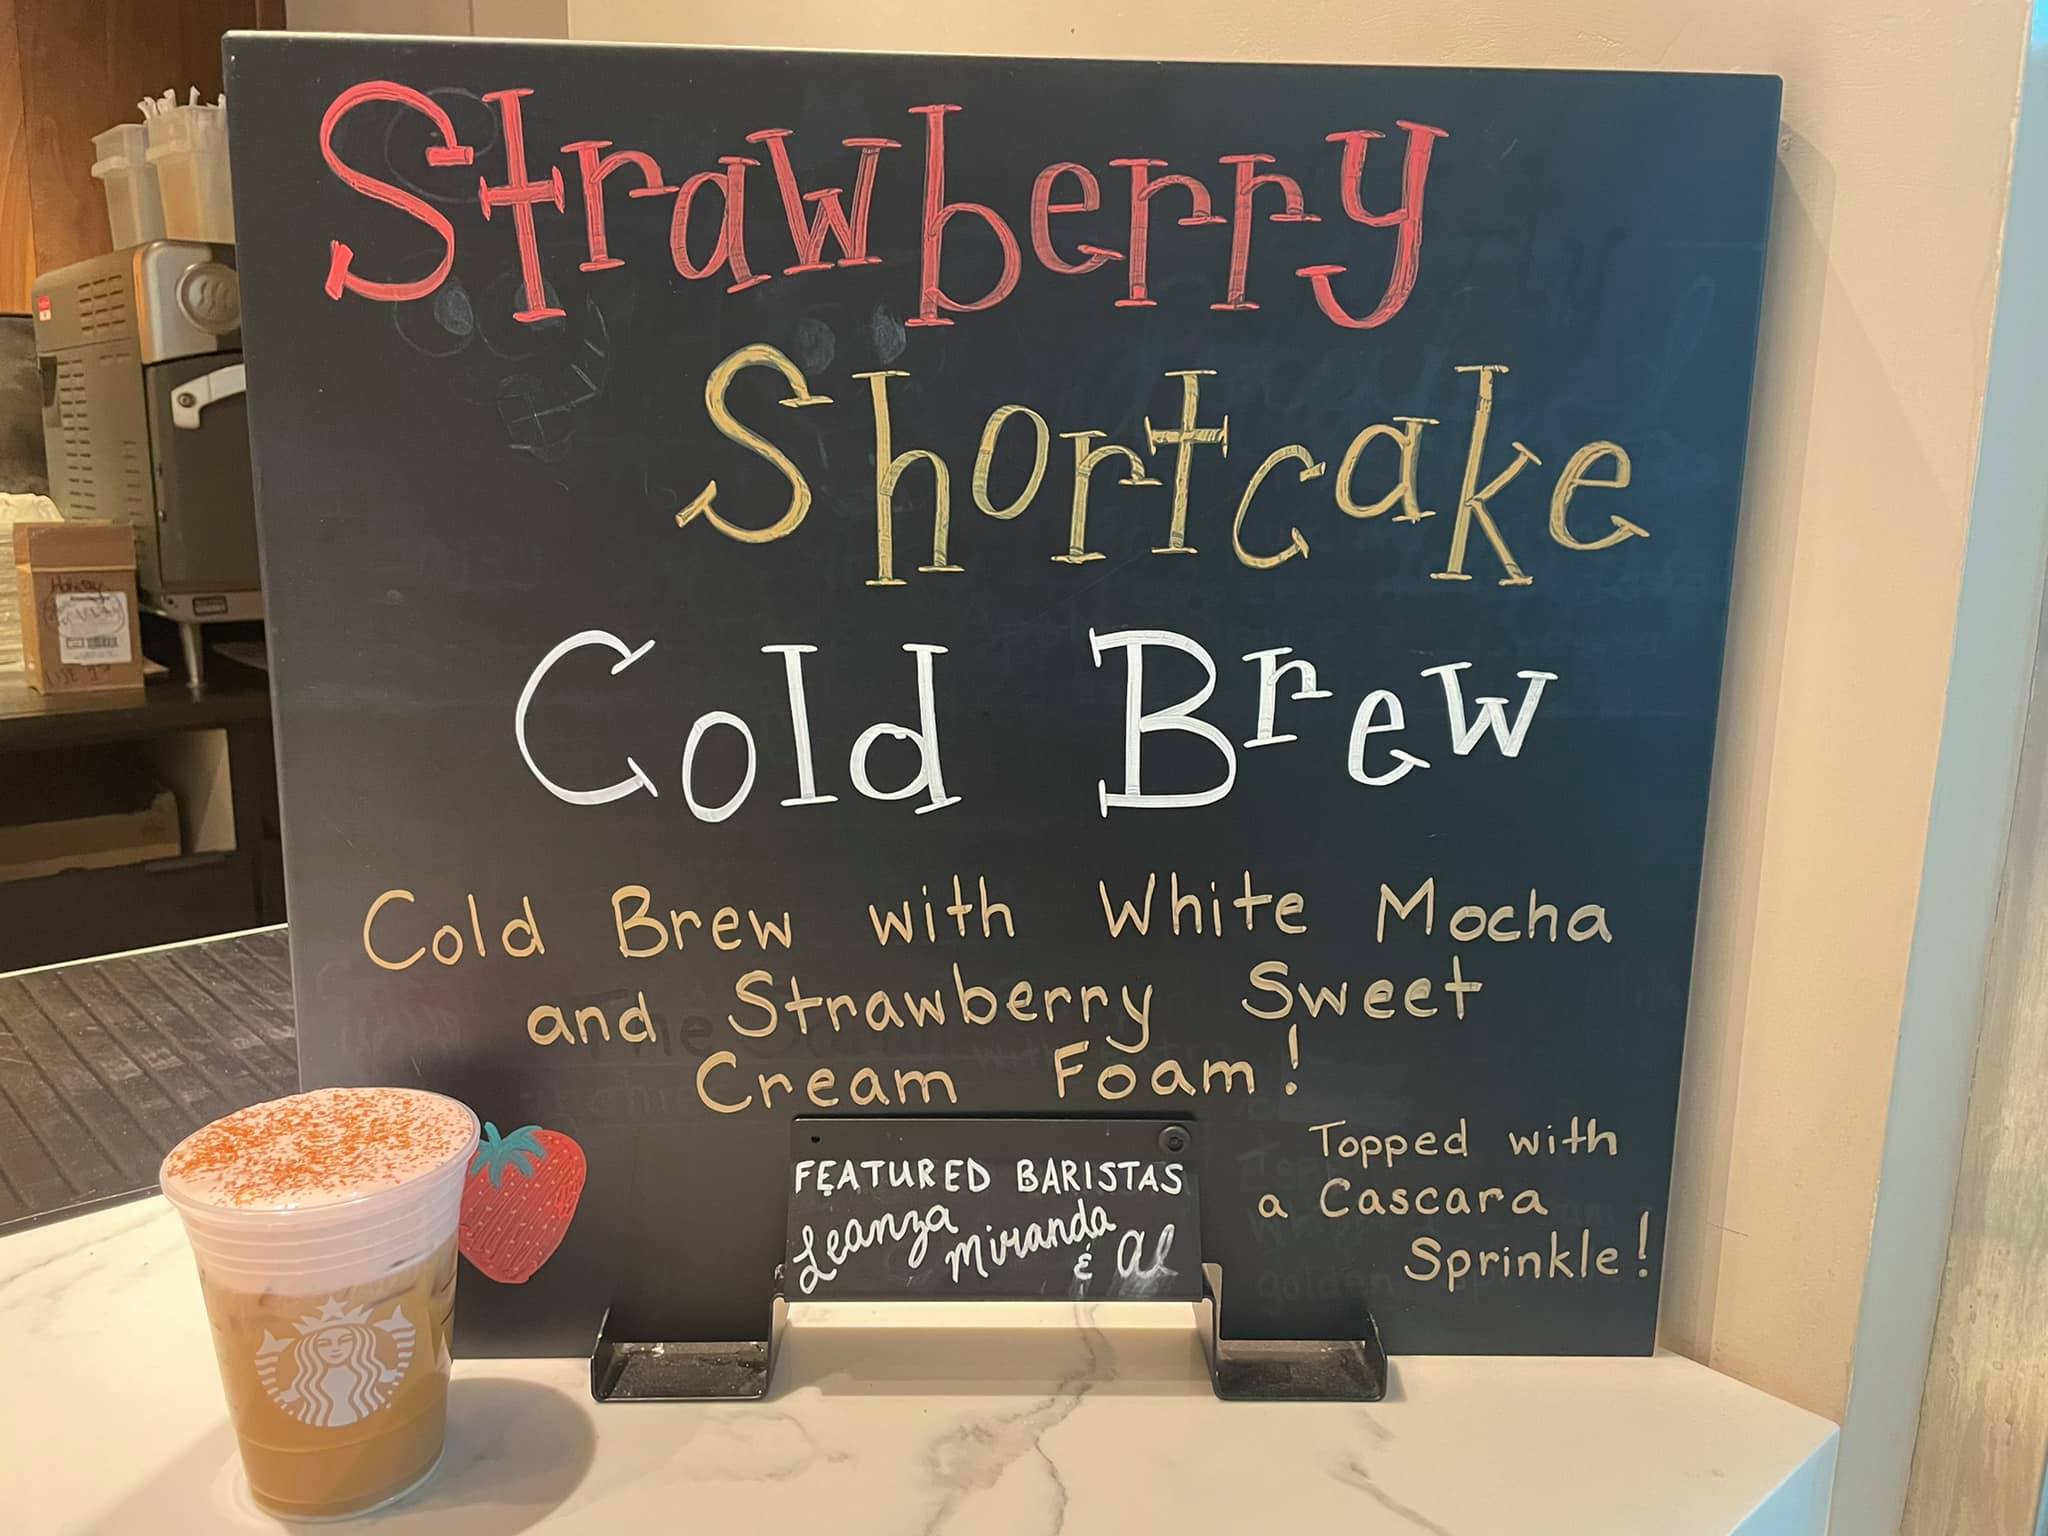 Strawberry
Shortcake
Cold Brew
Cold Brew with White Mocha
and Strawberry Sweet
Cream Foam!
Topped with
a Cascara
Sprinkle!
FEATURED BARISTAS
Leanza
Miranda
& Al